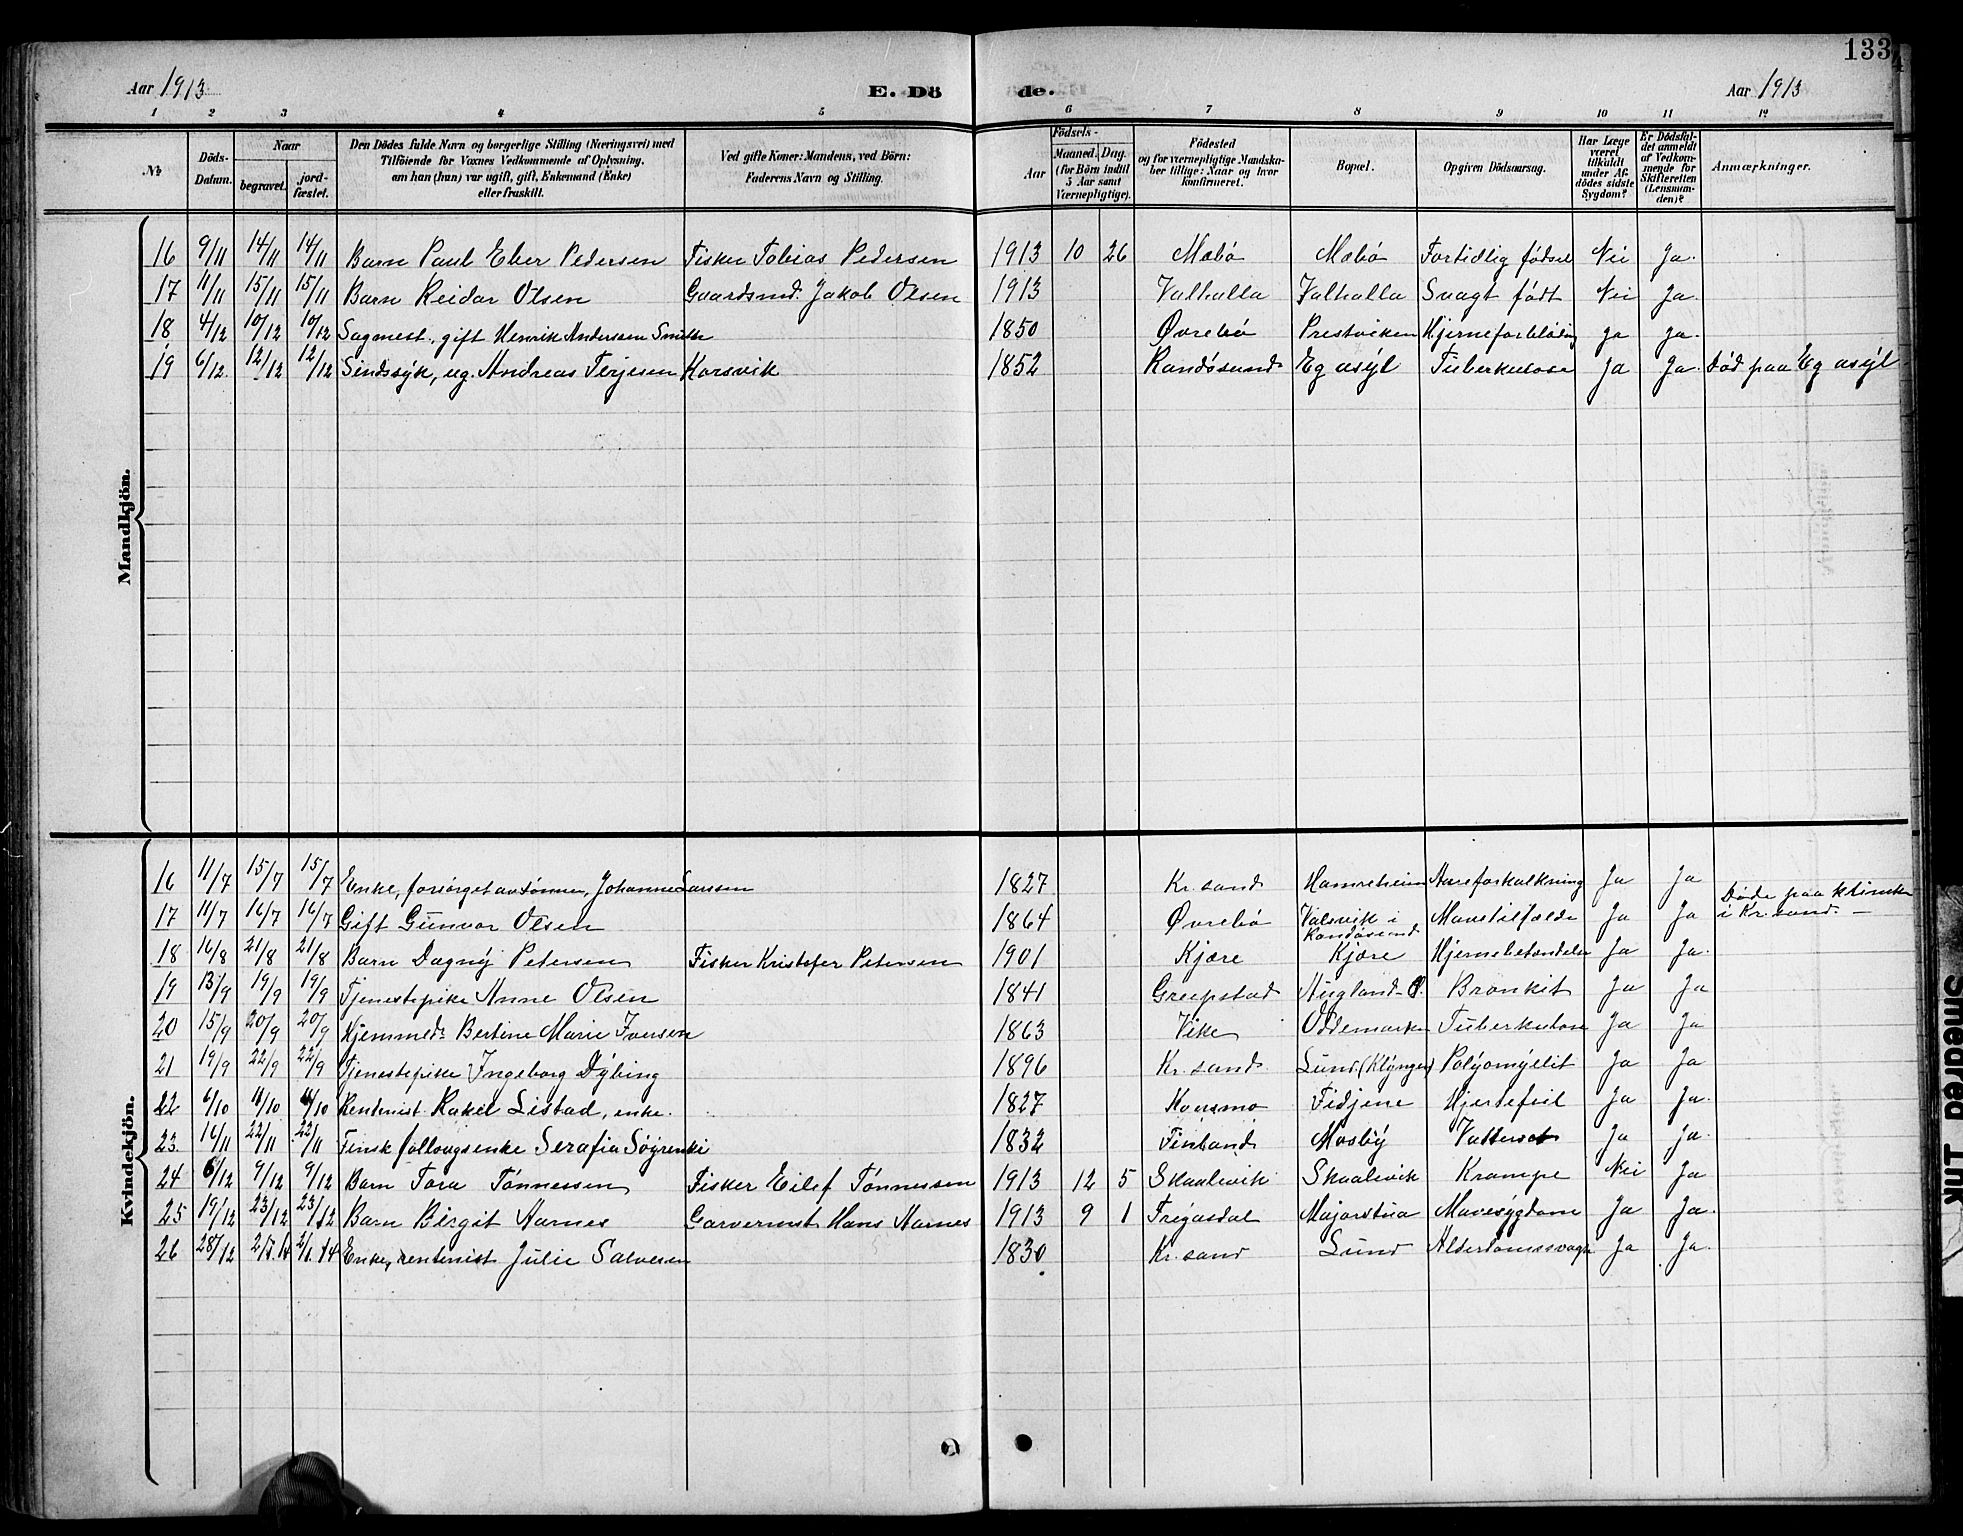 133
Aar 1913 E. Dö de. Aar 1913
1 2 3 4 5 6 7 8 9 10 11 12
No
Döds-Datum.
Naar
begravet.
jord-fæstet.
Den Dödes fulde Navn og borgerlige Stilling (Næringsvei) med
Tilföiende for Voxnes Vedkommende af Oplysning,
om han (hun) var ugift, gift, Enkemand (Enke)
eller fraskilt.
Ved gifte Koner: Mandens, ved Börn:
Faderens Navn og Stilling.
Födsels-
Aar
Maaned. Dag.
(for Börn indtil
5 Aar samt
Værnepligtige).
Födested
og for værnepligtige Mandska-
ber tillige: Naar og hvor
konfirmeret.
Bopæl.
Opgiven Dödsaarsag.
Har Læge
været
tilkaldt
under Af-
dödes sidste
Sygdom?
Er Dödsfal-
det anmeldt
af Vedkom-
mende for
Skifteretten
(Lensman-
den)?
Anmærkninger.
Mandkjön.
16 9/11 14/11 14/11 Barn Paul Eber Pedersen Fisker Tobias Pedersen 1913 10 26 Mæbø Mæbø Fortidlig fødsel Nei Ja.
17 11/11 15/11 15/11 Barn Reidar Olsen Gaardsmd. Jakob Olsen 1913 Valhalla Valhalla Svagt født Nei Ja.
18 4/12 10/12 10/12 Sagmest., gift Henrik Anderssen 1850 Øvrebø Prestviken Hjerneforblødng ja ja.
19 6/12. 12/12 12/12 Sindssyk, ug. Andreas Terjesen Korsvik 1852 Randøsund Eg asyl Tuberkulose Ja Ja. Død paa Eg asyl
Kvindekjön.
16 11/7 15/7 15/7 Enke, forsørget av sønner, Johanne Larssen 1827 Kr. sand Hamreheim Aareforkalkning Ja Ja
17 11/7 16/7 16/7 Gift Gunvor Olsen 1864 Øvrebø Valsvik i Randøsund Mavetilfælde Ja Ja Døde paa klinikk i Kr. sand. —
18 16/8 21/8 21/8 Barn Dagny Petersen Fisker Kristofer Petersen 1901 Kjære Kjære Hjernebetændelse Ja Ja.
19 13/9 19/9 19/9 Tjenestepike Anne Olsen 1841 Greipstad Augland Bronkit Ja Ja
20 15/9 20/9 20/9 Hjemmed. Bertine Marie Iversen 1863 Vike Oddemarken Tuberkulose Ja Ja
21 19/9 22/9 22/9 Tjenestepike Ingeborg Dybing 1896 Kr. sand Lund (Klynger) Polyomyllit Ja Ja
22 6/10 11/10 11/10 Rentenist Rakel Listad, enke. 1827 Homsmo Fidjene Hjertefeil Ja Ja.
23. 16/11 22/11 22/11 Finsk føllougsenke Serafia Søgrenki 1832 Finland Mosby Vattersot Ja ja.
24 6/12 9/12 9/12 Barn Tora Tønnessen Fisker Eilef Tønnessen 1913 12 5 Skaalevik Skaalevik Krampe Nei Ja
25 19/12 23/12 23/12 Barn Birgit Aarnes Garvermst Hans Aarnes 1913 9 1 Tregasdal Majorstua Mavesygdom Ja Ja.
26 28/12 2/1. 14 2/1. 14 Enke, rentenist Julie Salvesen 1830 Kr. sand Lund Alderdomssvagh Ja Ja.
Smeared Ink